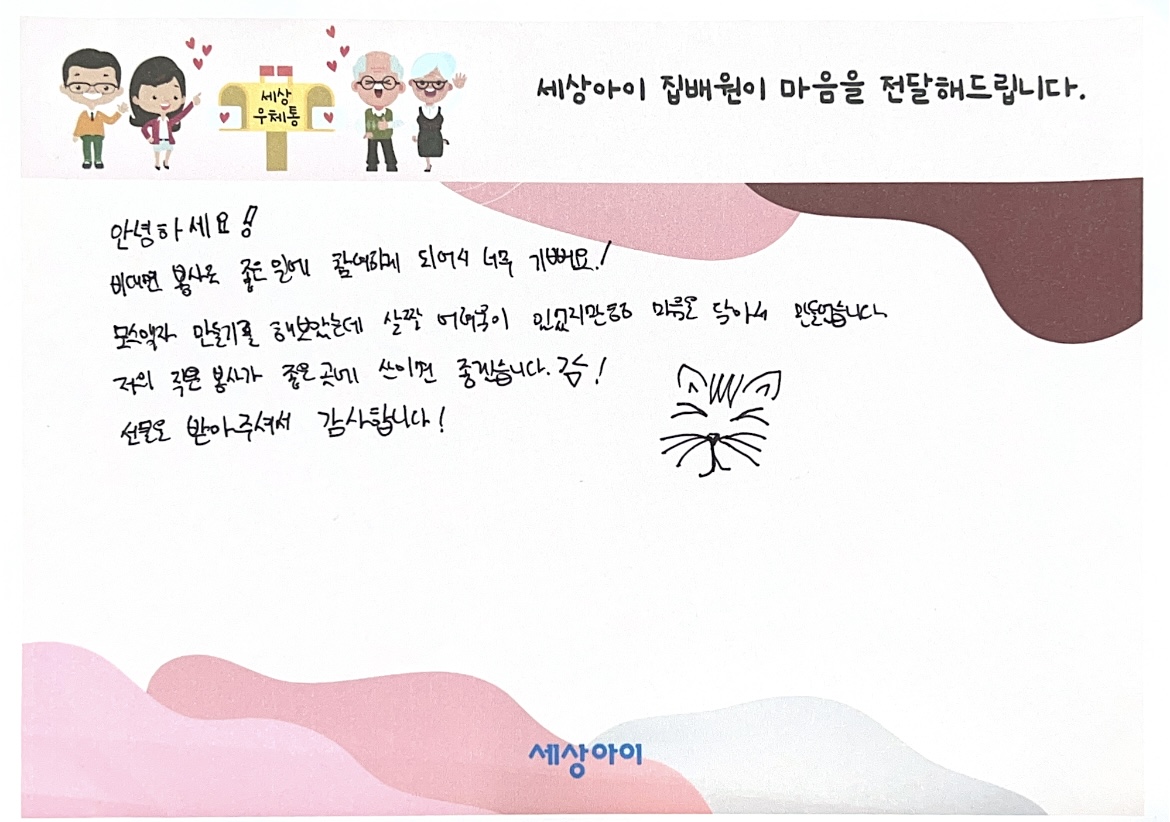 세상아이 집배원이 마음을 전달해드립니다.
세상
우체통
안녕하세요!
비대면 봉사로 좋은 일에 참여하게 되어서 너무 기뻐요!
만들기를 해보았는데 살짝 어려움이 있었지만 마음을 담아서 만들었습니다
저의 작은 봉사가 좋은 곳에 쓰이면 좋겠습니다.
선물로 받아주셔서 감사합니다!
세상아이